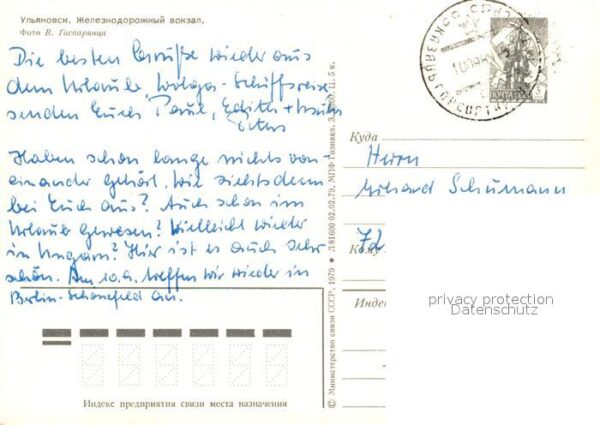 Ульяновск. Железнодорожный вокзал.
Фото В. Гаспарянца
Die besten Grüße wieder aus
dem Urlaub, Wolga-Schiffsreise
senden Euch Paul, Edith +
Haben schon lange nichts von-
einander gehört. Wie siehts denn
bei Euch aus? Auch schon im
Urlaub gewesen? Vielleicht wieder
in Ungarn? Hier ist es auch sehr
schön. Am 10.9. treffen wir wieder in
Berlin-Schönefeld an.
Индекс предприятия связи места назначения
© Министерство связи СССР, 1979 • Л 81600 02.02.79. МПФ Гознака. З. Ц. 5 к.
Куда
Herrn
Erhard Schumann
72
Кому
Индекс
privacy protection
Datenschutz